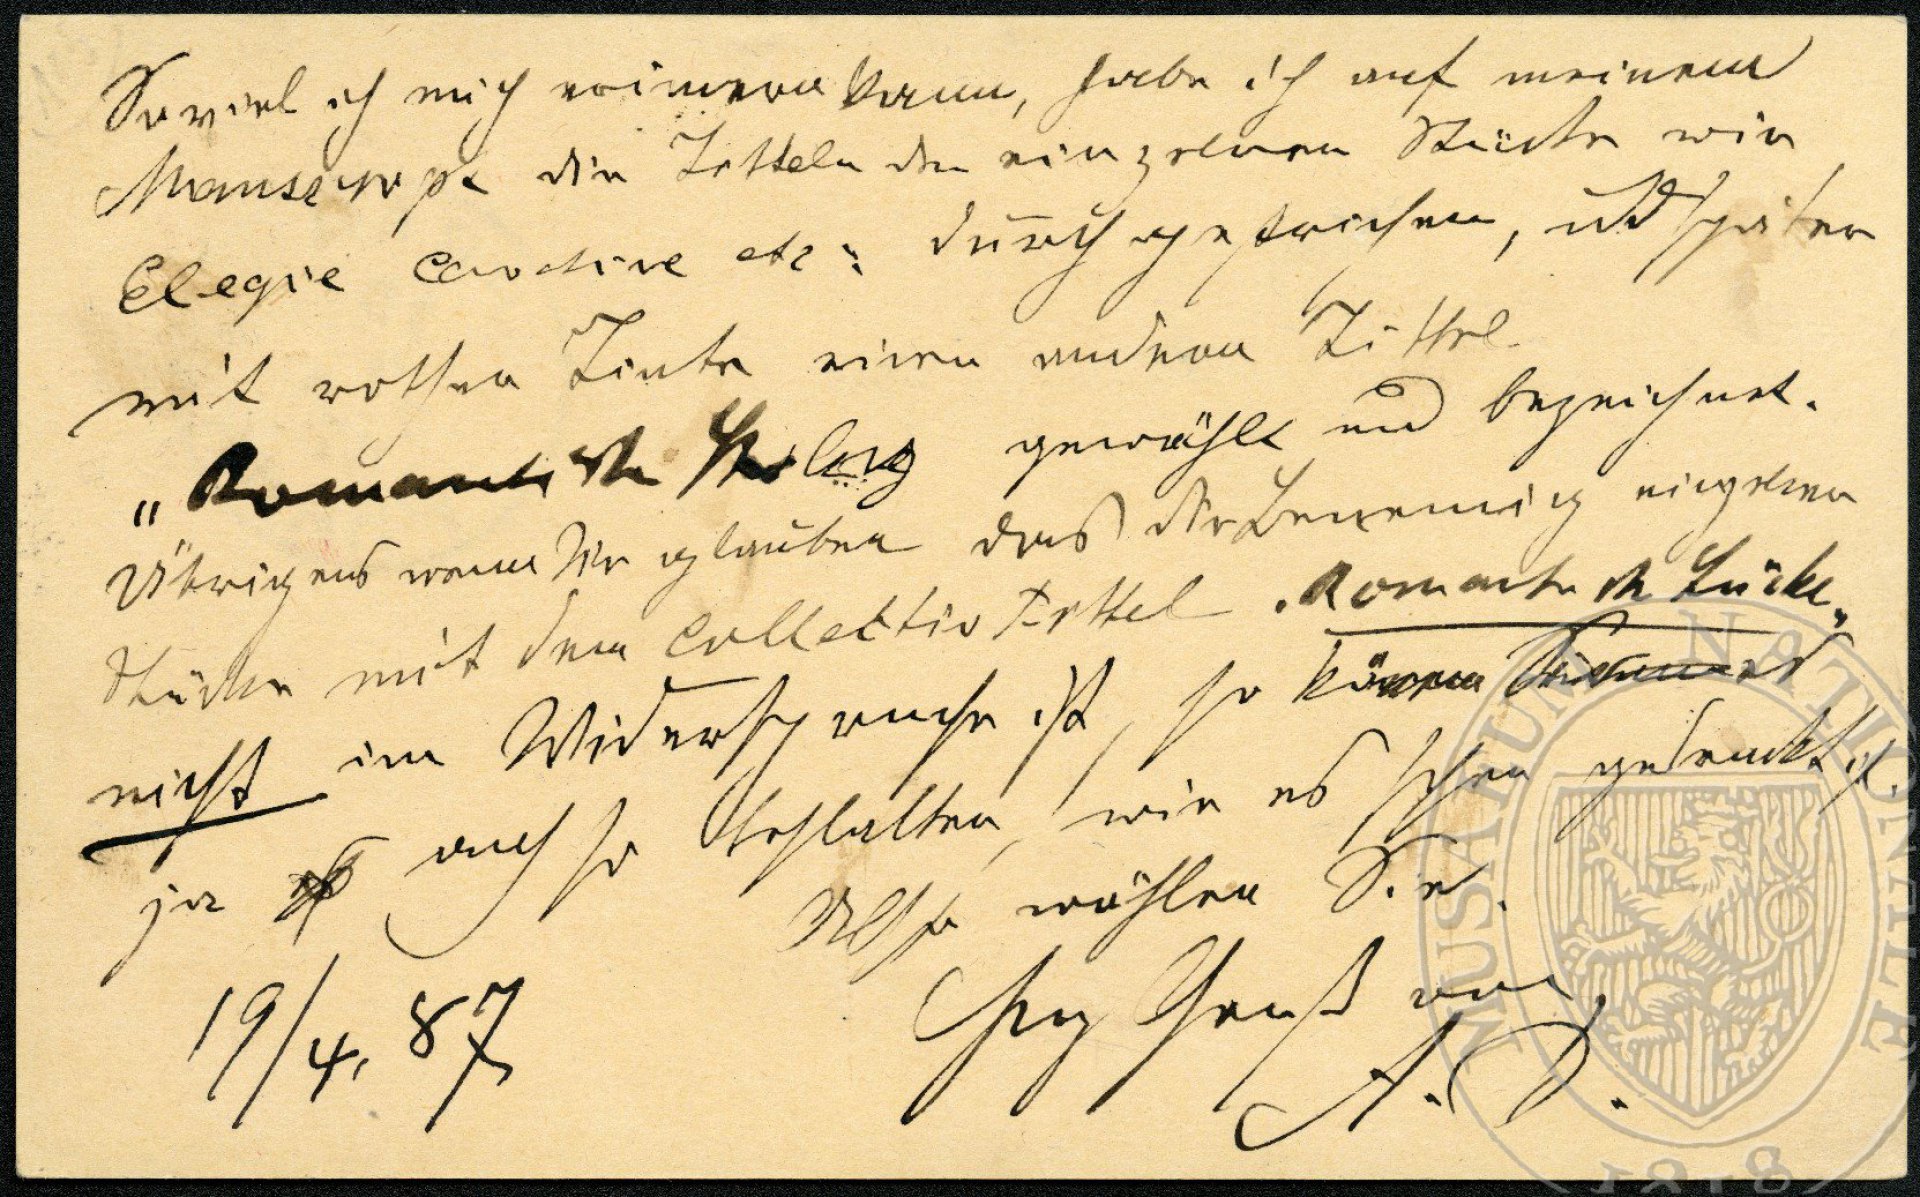 Soviel ich mich erinnern kann, habe ich auf meinem
Manuscript die Titteln der einzelnen Stücke wie
Elegie Cavatine etc: durchgestrichen, und später
mit rother Tinte einen andern Tittel
„Romantische gewählt und bezeichnet.
Übrigens wenn Sie glauben das die Benennung einzelner
Stücke mit dem Collectiv Tittel „Romantische Stücke„
nicht im Widerspruche ist, so können
ja auch so behalten, wie es schon gedruckt ist.
Also wählen Sie.
19/4. 87
Hrz Gruß von
A. D.
MUSAEUM NATIONALE
1818